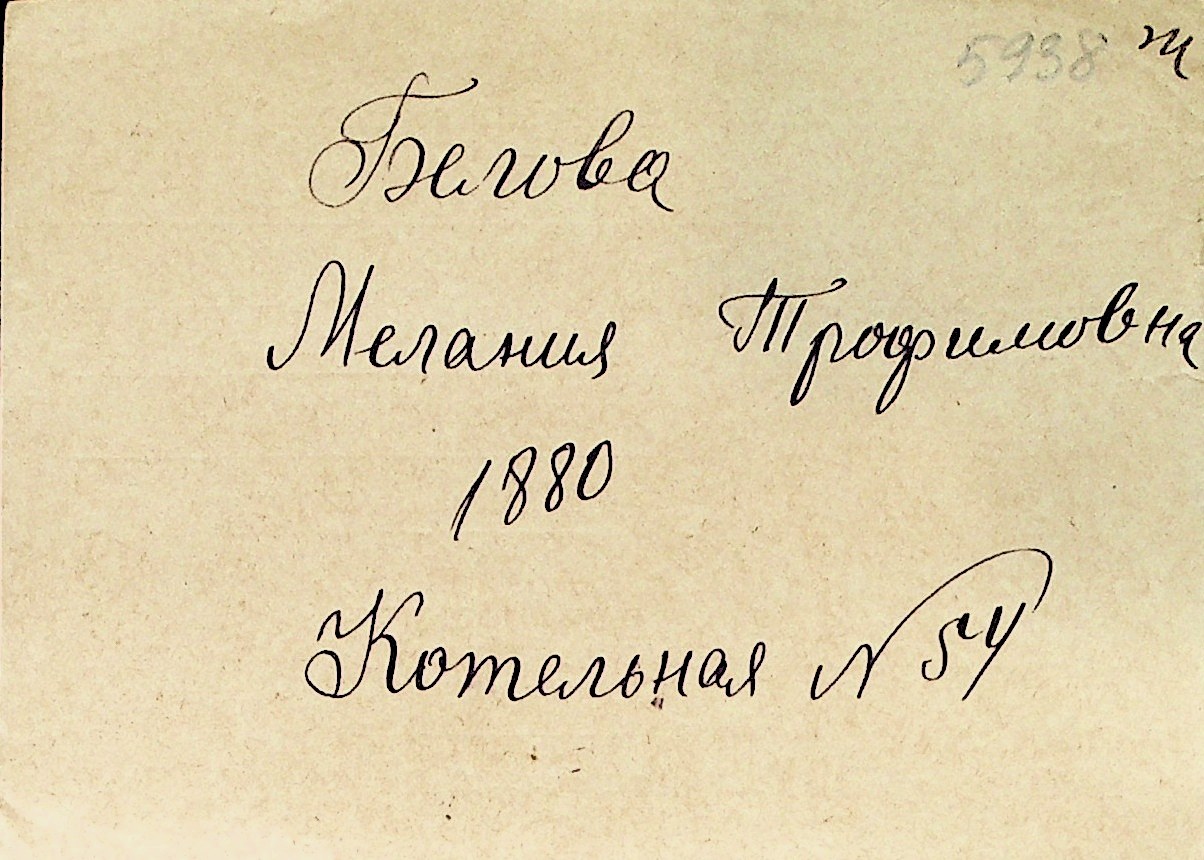 5938 ж
Белова
Мелания Трофимовна
1880
Котельная № 54